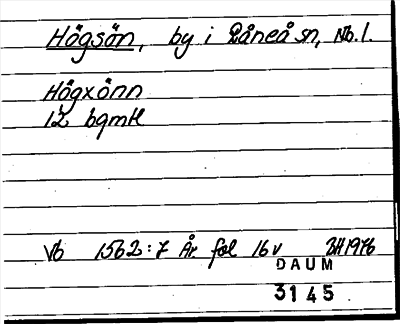 Högsön, by i Råneå sn, Nb. l.
Högxönn
12 bgmtl
Vb 1562:7 År fol 16v BH1976
DAUM
3145